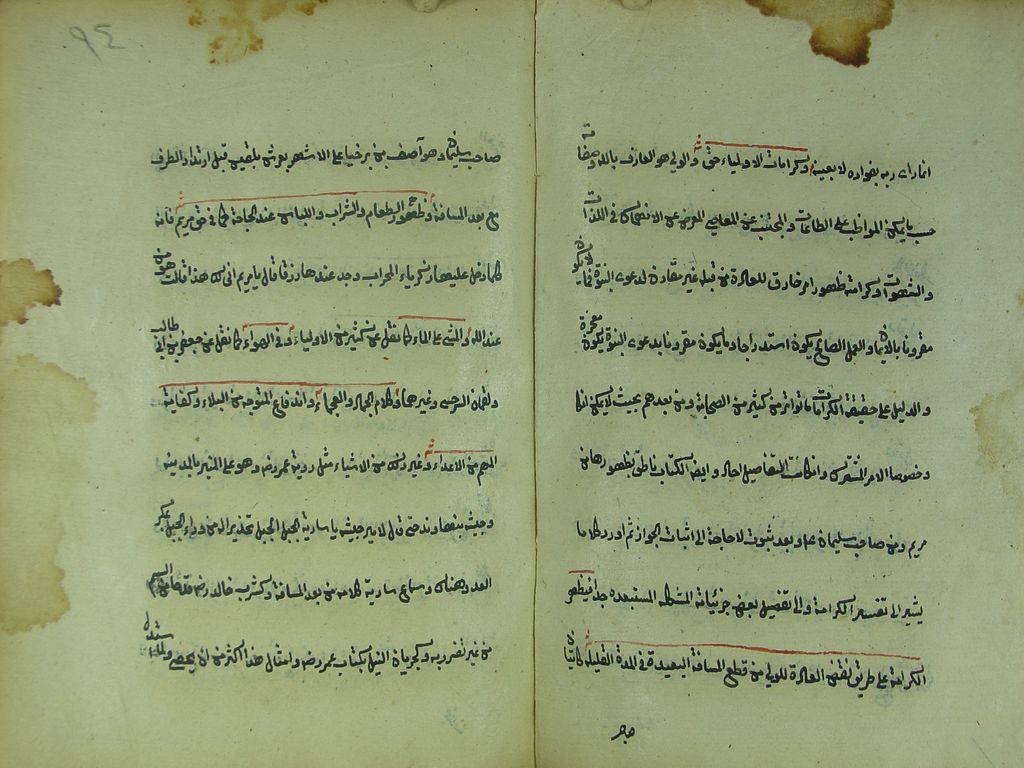 انما رأى ربه بفؤاده لا بعينه وكرامات الاولياء حق والولي هو العارف بالله وصفاته
حسب ما يمكن المواظب على الطاعات والمجتنب عن المعاصي المعرض عن الانهماك في اللذات
والشهوات وكرامته ظهور امر خارق للعادة من قبله غير مقارن لدعوى النبوة فما لا يكون
مقرونا بالايمان والعمل الصالح يكون استدراجا وما يكون مقرونا بدعوى النبوة يكون معجزة
والدليل على حقيقة الكرامات ما تواتر من كثير من الصحابة ومن بعدهم بحيث لا يمكن انكا
وخصوصا الامر المشترك وان كانت التفاصيل احاد وايضا الكتاب ناطق بظهورها من
مريم ومن صاحب سليمان عم وبعد ثبوت لا حاجة الى اثبات الجواز ثم اورد كلاما
يشير الى تفسير الكرامة والى تفصيل بعض جزئياته المستبعدة جدا فيظهر
الكرامة على طريق نقض العادة للولي من قطع المسافة البعيدة في المدة القليلة كاتيان
صاحب
٩٤
صاحب سليمان وهو آصف بن برخيا على الاشهر بعرش بلقيس قبل ارتداد الطرف
مع بعد المسافة وظهور الطعام والشراب واللباس عند الحاجة كما في حق مريم فانه
كلما دخل عليها زكرياء المحراب وجد عندها رزقا قال يا مريم انى لك هذا قالت هو من
عند الله والمشي على الماء كما نقل عن كثير من الاولياء وفي الهواء كما نقل عن جعفر بن ابي طالب
ولقمان السرخسي وغيرهما وكلام الجماد والعجماء واندفاع المتوجه من البلاء وكفاية
المهم من الاعداء وغير ذلك من الاشياء مثل روية عمر رض وهو على المنبر بالمدينة
وجيشه بنهاوند حتى قال لامير جيشه يا سارية الجبل الجبل تحذيرا له من وراء الجبل لمكر
العدو هناك وسماع سارية كلامه من بعد المسافة وكشرب خالد رض السم
من غير تضرر به وكجريان النيل بكتاب عمر رض وامثال هذا اكثر من ان يحصى ولما استدل